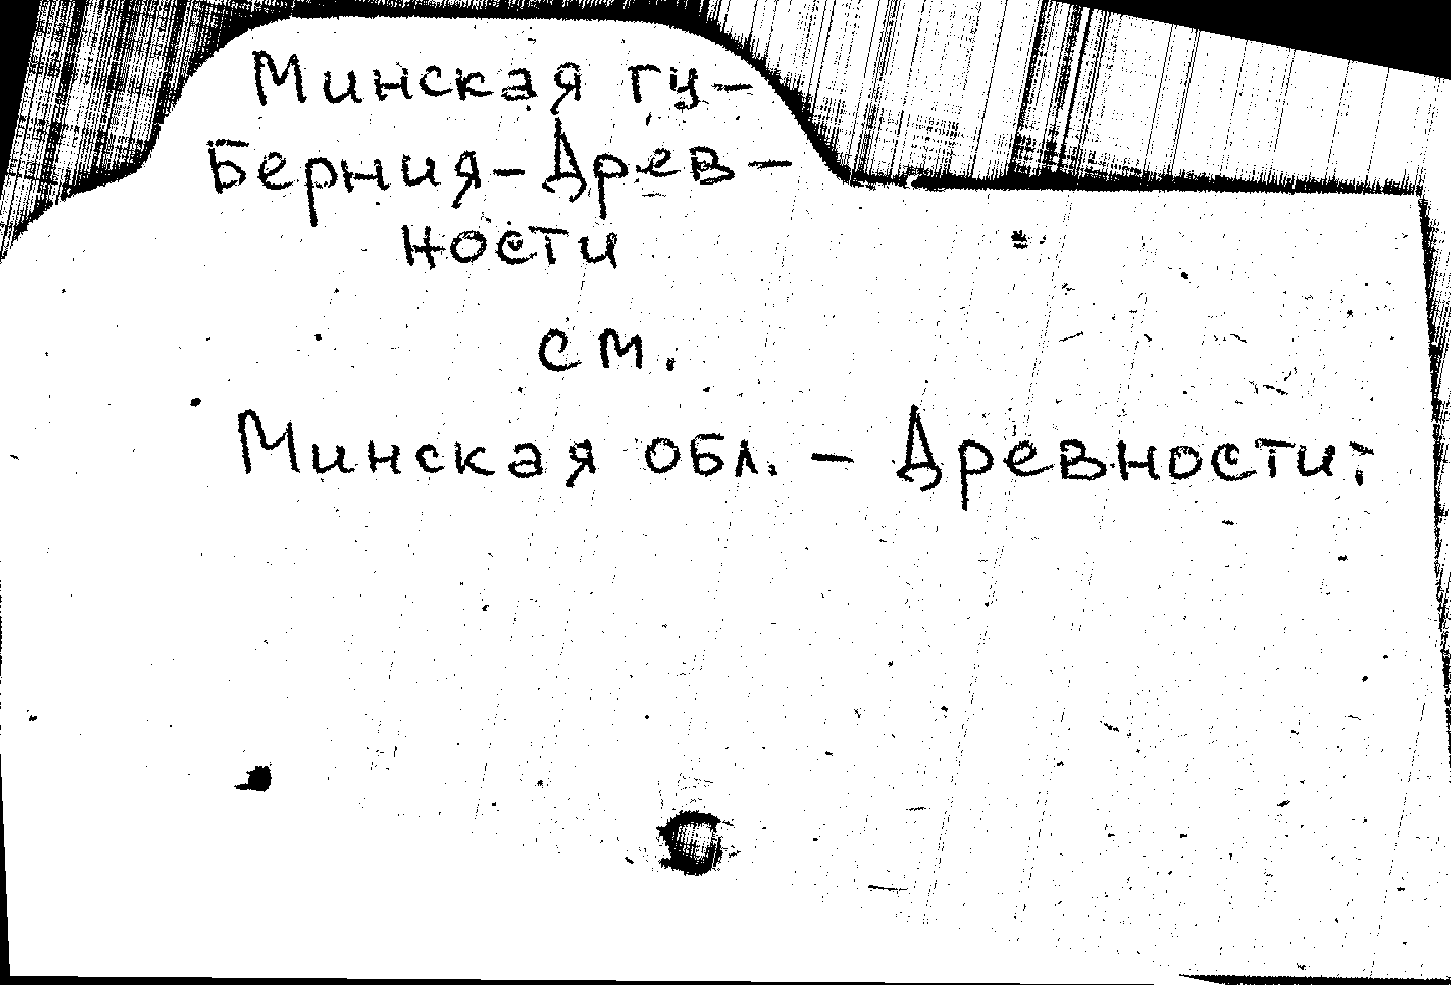 Минская гу-
берния-Древ-
ности
см.
Минская обл. - Древности;